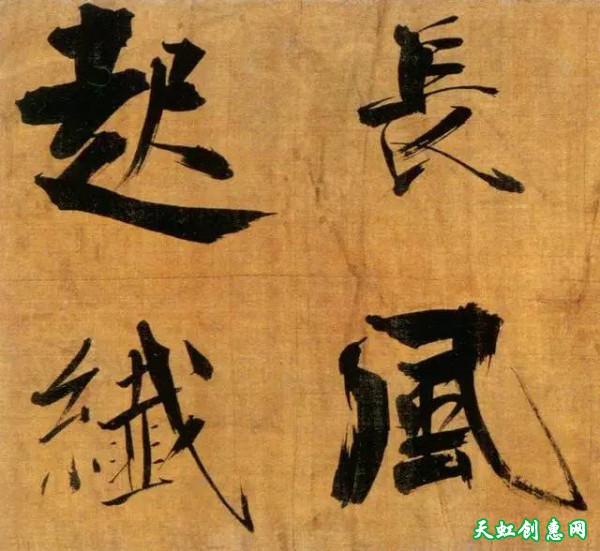 長風
起纖
天虹创惠网